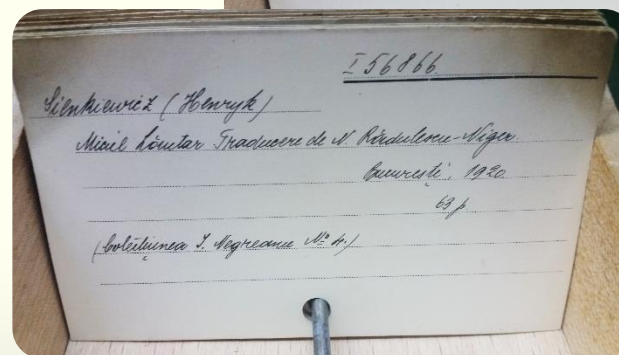 I 56866
Sienkiewicz (Henryk)
Micul Lăutar Traducere de N. Rădulescu-Niger.
București, 1920
63 p.
(Colecțiunea I. Negreanu No 4.)